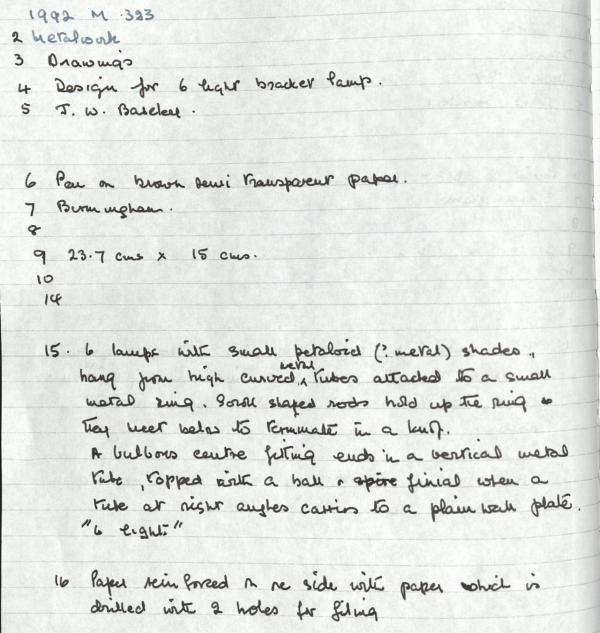 1992 M .323
2 Metalwork
3 Drawings
4 Design for 6 light bracket lamp.
5 J. W. Bareley.
6 Pen on brown semi transparent paper.
7 Birmingham.
8
9 23.7 cms x 15 cms.
10
14
15. 6 lamps with small petaloid (? metal) shades,
hang from high curved, metal tubes attached to a small
metal ring. Scroll shaped rods hold up the ring &
they meet below to terminate in a knop.
A bulbous centre fitting ends in a vertical metal
tube, topped with a ball & spire finial when a
tube at right angles carries to a plain wall plate.
"6 light"
16 Paper reinforced on one side with paper which is
drilled with 2 holes for filing